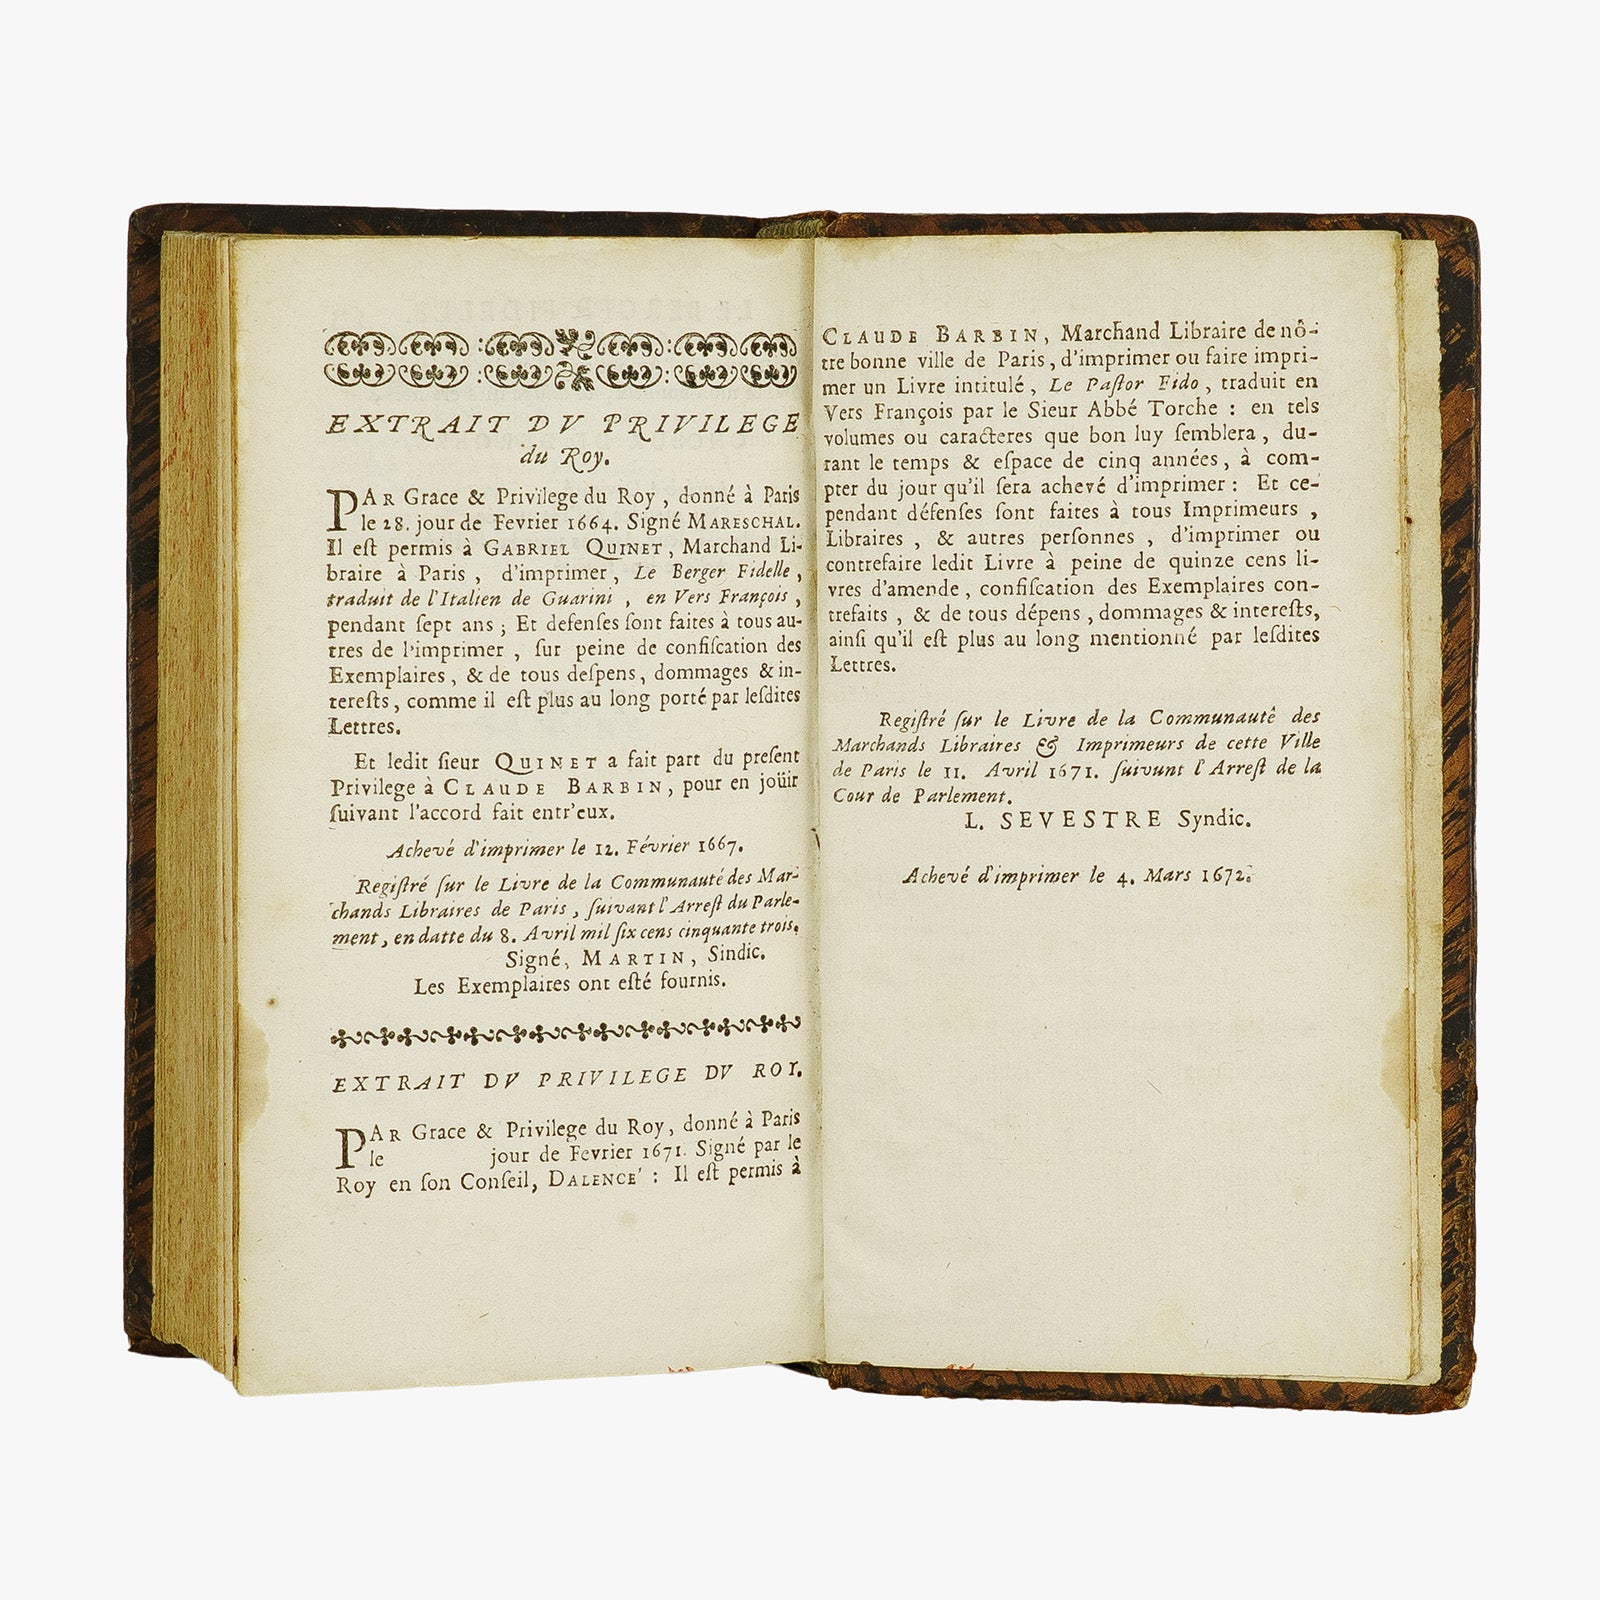 EXTRAIT DV PRIVILEGE
du Roy.
PAR Grace & Privilege du Roy, donné à Paris
le 28. jour de Fevrier 1664. Signé MARESCHAL.
Il eſt permis à GABRIEL QUINET, Marchand Li-
braire à Paris, d'imprimer, Le Berger Fidelle,
traduit de l'Italien de Guarini, en Vers François,
pendant ſept ans; Et défenſes ſont faites à tous au-
tres de l'imprimer, ſur peine de confiſcation des
Exemplaires, & de tous deſpens, dommages & in-
tereſts, comme il eſt plus au long porté par leſdites
Lettres.
Et ledit ſieur QUINET a fait part du preſent
Privilege à CLAUDE BARBIN, pour en joüir
ſuivant l'accord fait entr'eux.
Achevé d'imprimer le 12. Février 1667.
Regiſtré ſur le Livre de la Communauté des Mar-
chands Libraires de Paris, ſuivant l'Arreſt du Parle-
ment, en datte du 8. Avril mil ſix cens cinquante trois.
Signé, MARTIN, Sindic.
Les Exemplaires ont eſté fournis.
EXTRAIT DV PRIVILEGE DV ROY.
PAR Grace & Privilege du Roy, donné à Paris
le jour de Fevrier 1671. Signé par le
Roy en ſon Conſeil, DALENCE' : Il eſt permis à
CLAUDE BARBIN, Marchand Libraire de nô-
tre bonne ville de Paris, d'imprimer ou faire impri-
mer un Livre intitulé, Le Paſtor Fido, traduit en
Vers François par le Sieur Abbé Torche : en tels
volumes ou caracteres que bon luy ſemblera, du-
rant le temps & eſpace de cinq années, à com-
pter du jour qu'il ſera achevé d'imprimer : Et ce-
pendant défenſes ſont faites à tous Imprimeurs,
Libraires, & autres perſonnes, d'imprimer ou
contrefaire ledit Livre à peine de quinze cens li-
vres d'amende, confiſcation des Exemplaires con-
trefaits, & de tous dépens, dommages & intereſts,
ainſi qu'il eſt plus au long mentionné par leſdites
Lettres.
Regiſtré ſur le Livre de la Communauté des
Marchands Libraires & Imprimeurs de cette Ville
de Paris le 11. Avril 1671. ſuivunt l'Arreſt de la
Cour de Parlement.
L. SEVESTRE Syndic.
Achevé d'imprimer le 4. Mars 1672.